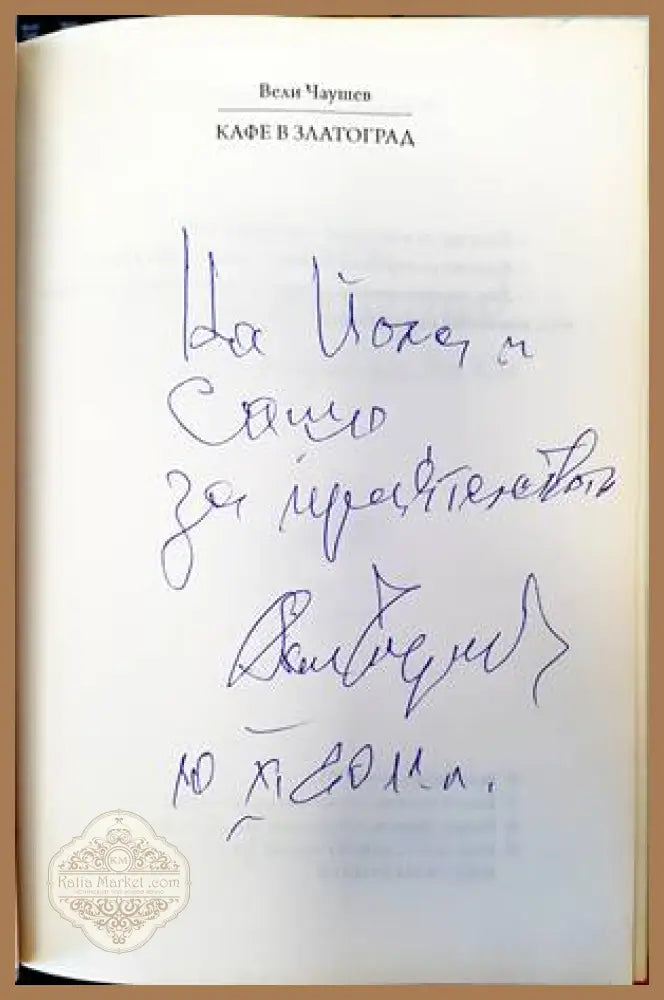 Вели Чаушев
КАФЕ В ЗЛАТОГРАД
На Йола и
Сашо
за приятелството
Вели Чаушев
10 XI. 2011 г.
KM
Katia Market .com